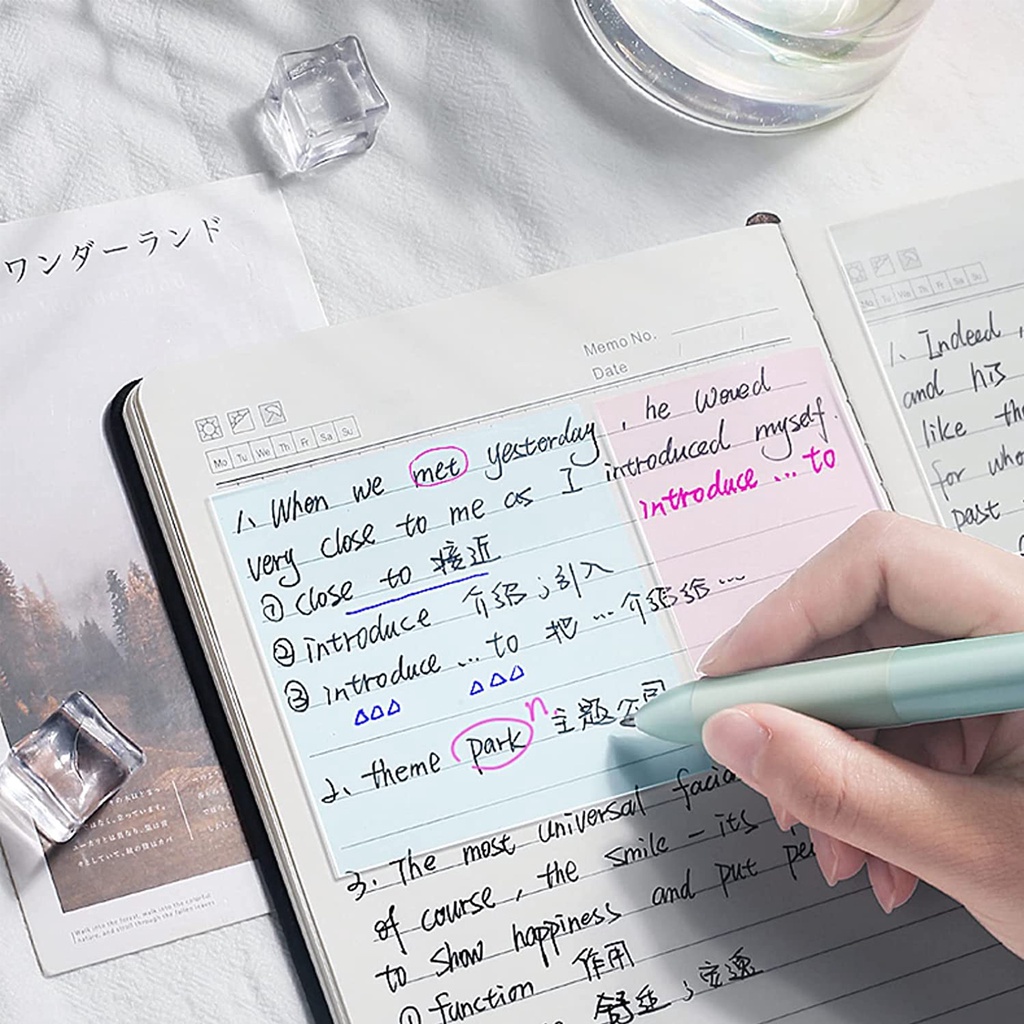 ワンダーランド
Memo No.
Date
Mo Tu We Th Fr Sa Su
1、When we met yesterday, he woved
very close to me as I introduced myself.
introduce ... to
① close to 接近
② introduce 介绍；引入
③ introduce ... to 把 ... 介绍给 ...
2、theme park n. 主题公园
3. The most universal facia
of course, the smile - its
to show happiness and put pe
① function 作用
舒适；安逸
Walk into the forest, walk into the colorful
nature, and stroll through the fallen leaves
Mo Tu We Th Fr Sa Su
1、Indeed,
and his
like th
for who
past